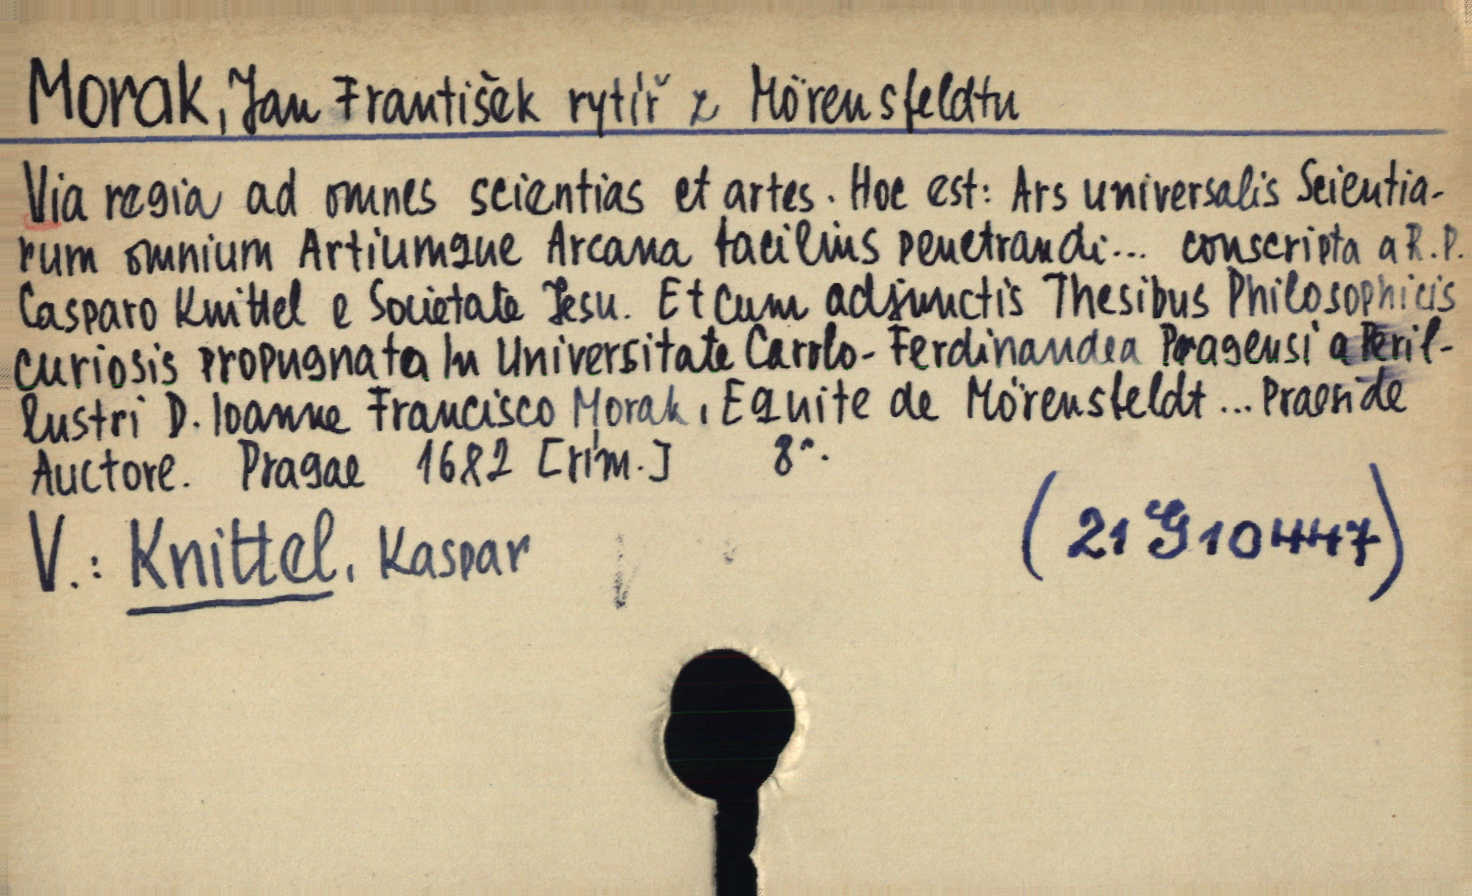 Morak, Jan František rytíř z Mörensfeldtu
Via regia ad omnes scientias et artes. Hoc est: Ars universalis Scientia-
rum omnium Artiumque Arcana facilius penetrandi... conscripta a R.P.
Casparo Knittel e Societate Jesu. Et cum adjunctis Thesibus Philosophicis
curiosis propugnata In Universitate Carolo-Ferdinandea Pragensi a Peril-
lustri D. Ioanne Francisco Morak, Equite de Mörensfeldt... Praeside
Auctore. Pragae 1682 [řím.] 8°.
V.: Knittel, Kaspar
(21 G 10447)